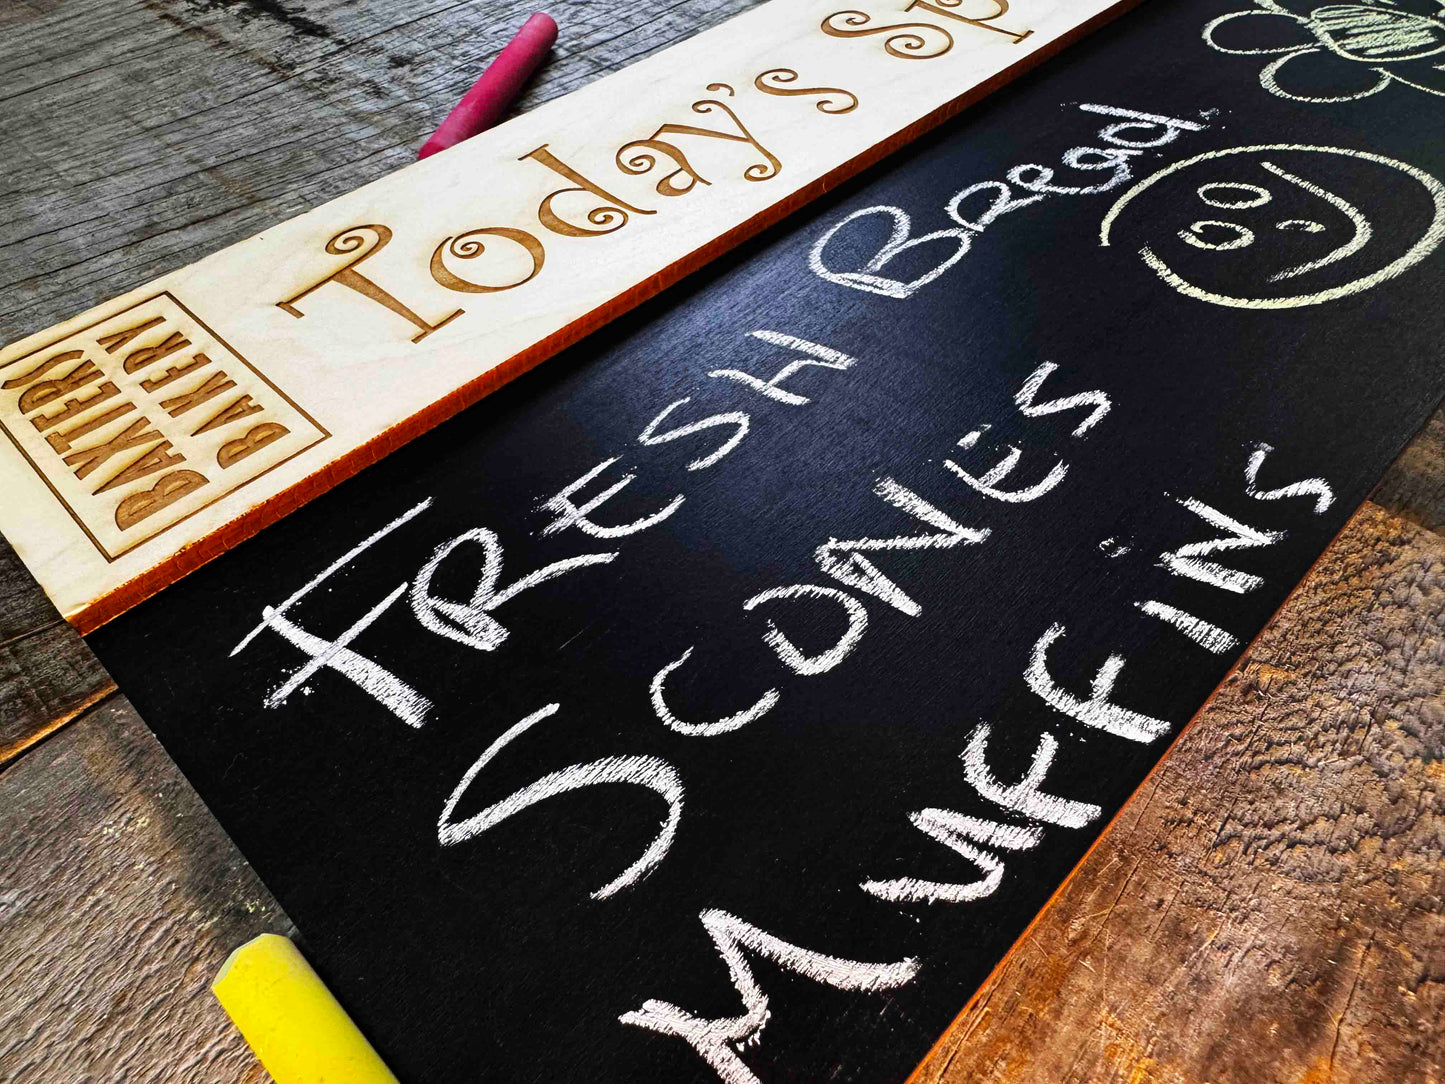 BAXTERS
BAKERY
Today's Sp
FRESH Bread
SCONES
MUFFINS